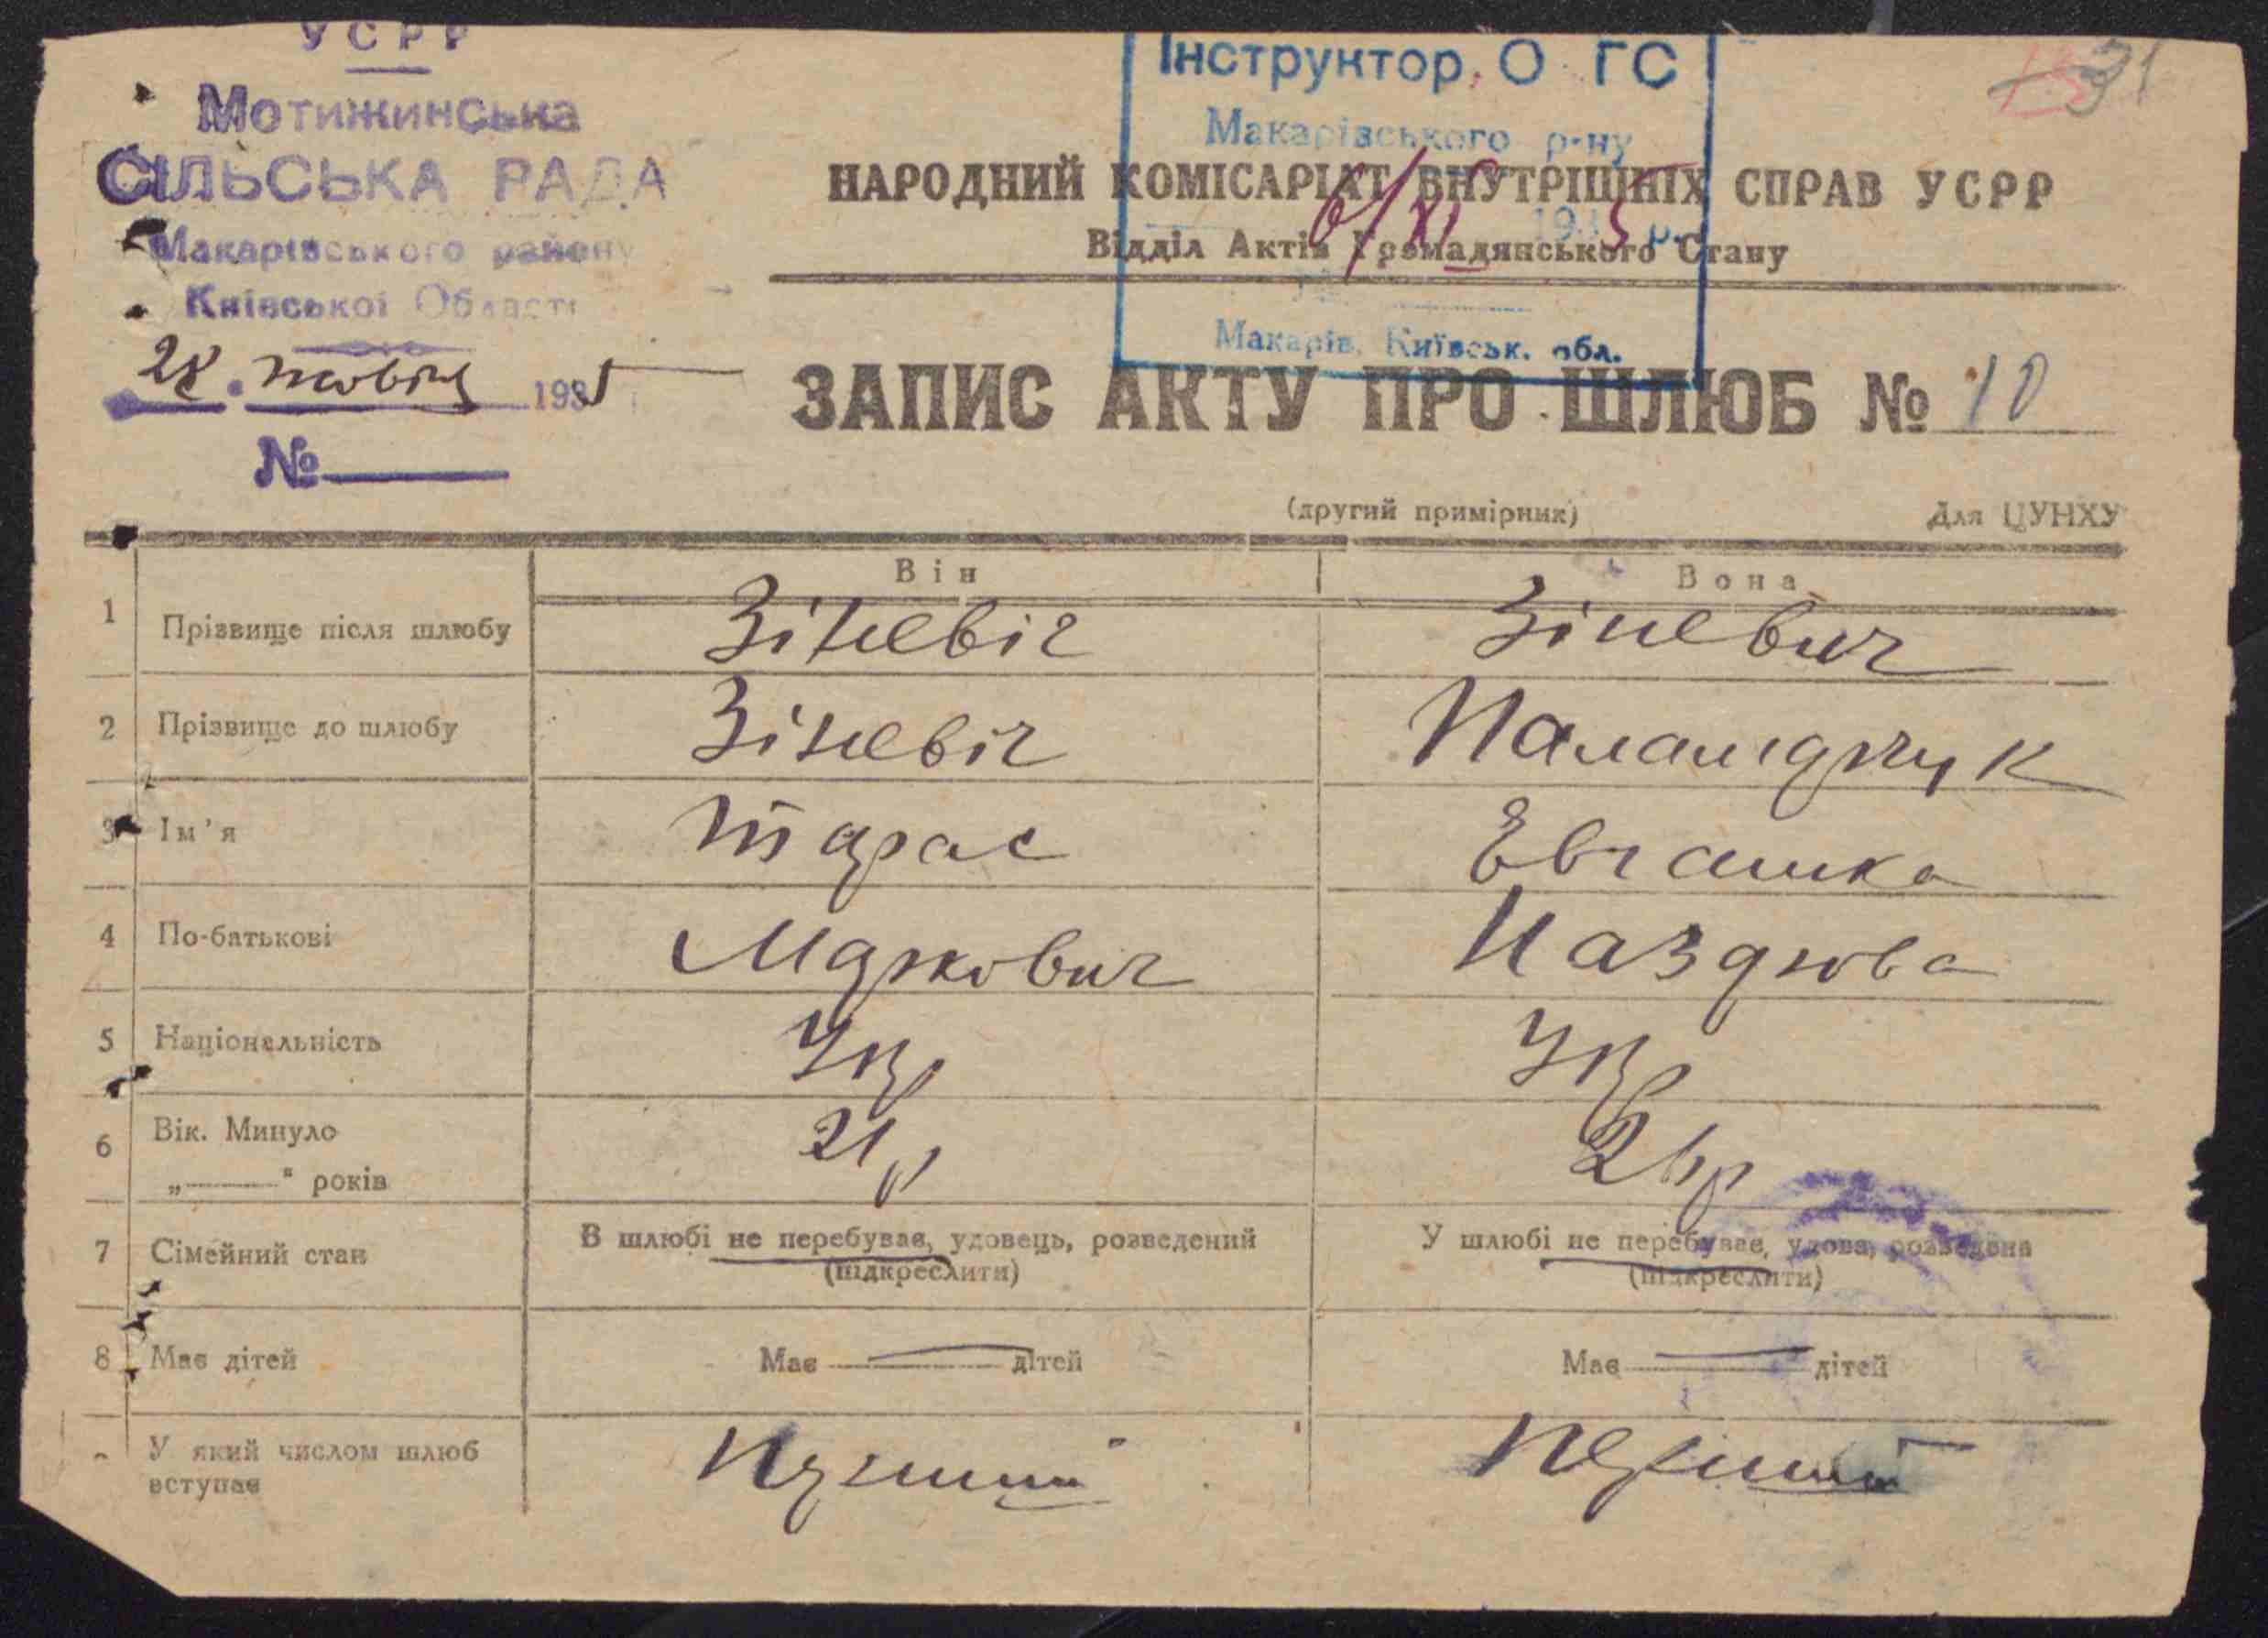 УСРР
Мотижинська
СІЛЬСЬКА РАДА
Макарівського району
Київської Області
28 жовтня 1935
№
Інструктор О ГС
Макарівського р-ну
6/XI 1935 р.
Макарів, Київськ. обл.
31
НАРОДНИЙ КОМІСАРІАТ ВНУТРІШНІХ СПРАВ УСРР
Відділ Актів Громадянського Стану
ЗАПИС АКТУ ПРО ШЛЮБ № 10
(другий примірник) Для ЦУНХУ
Він Вона
1 Прізвище після шлюбу Зіневіч Зіневич
2 Прізвище до шлюбу Зіневіч Паламарчук
3 Ім'я Тарас
4 По-батькові Маркович
5 Національність Укр Укр
6 Вік. Минуло 21 р
„ " років
7 Сімейний стан В шлюбі не перебуває, удовець, розведений У шлюбі не перебуває, удова, розведена
(підкреслити) (підкреслити)
8 Має дітей Має — дітей Має — дітей
У який числом шлюб Перший Перший
вступає